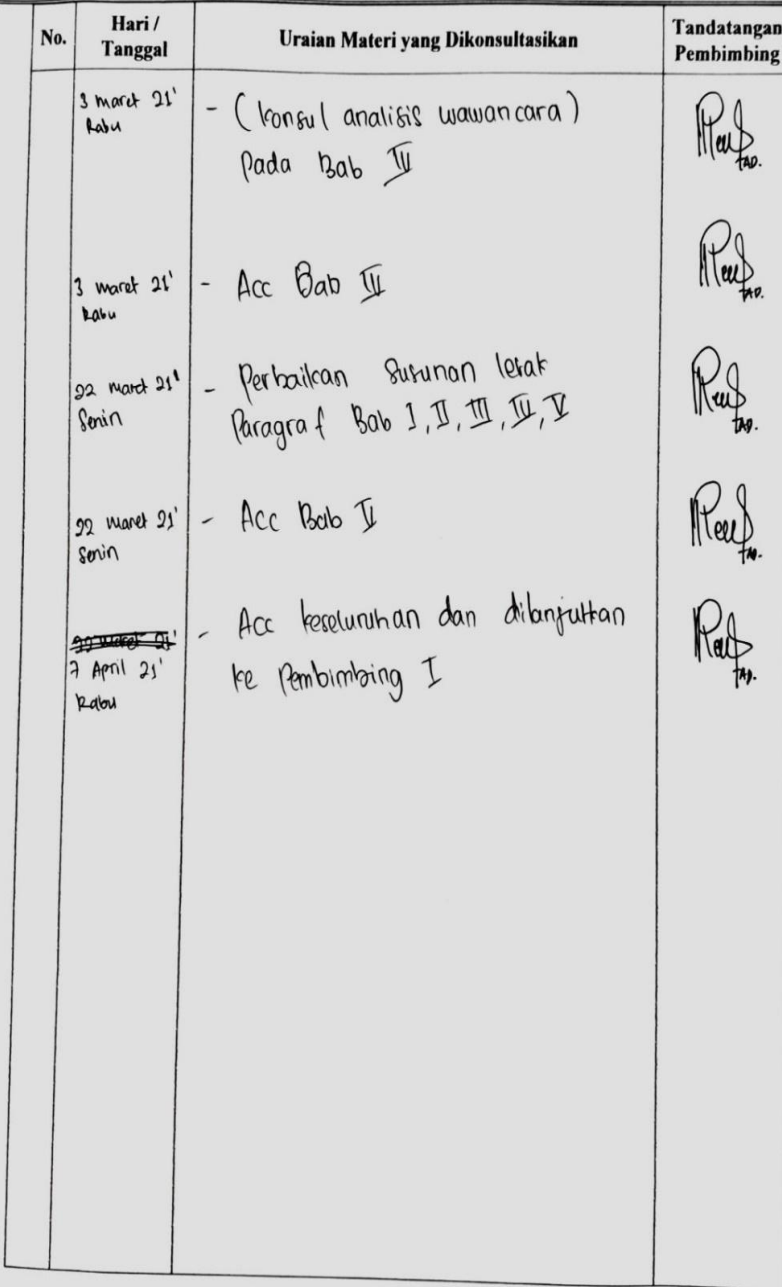 No.
Hari /
Tanggal
Uraian Materi yang Dikonsultasikan
Tandatangan
Pembimbing
3 maret 21'
Rabu
- (Konsul analisis wawancara)
Pada Bab IV
3 maret 21'
Rabu
- Acc Bab IV
22 maret 21'
Senin
- Perbaikan Susunan letak
Paragraf Bab I, II, III, IV, V
22 maret 21'
Senin
- Acc Bab V
22 maret 21'
7 April 21'
Rabu
- Acc keseluruhan dan dilanjutkan
ke Pembimbing I